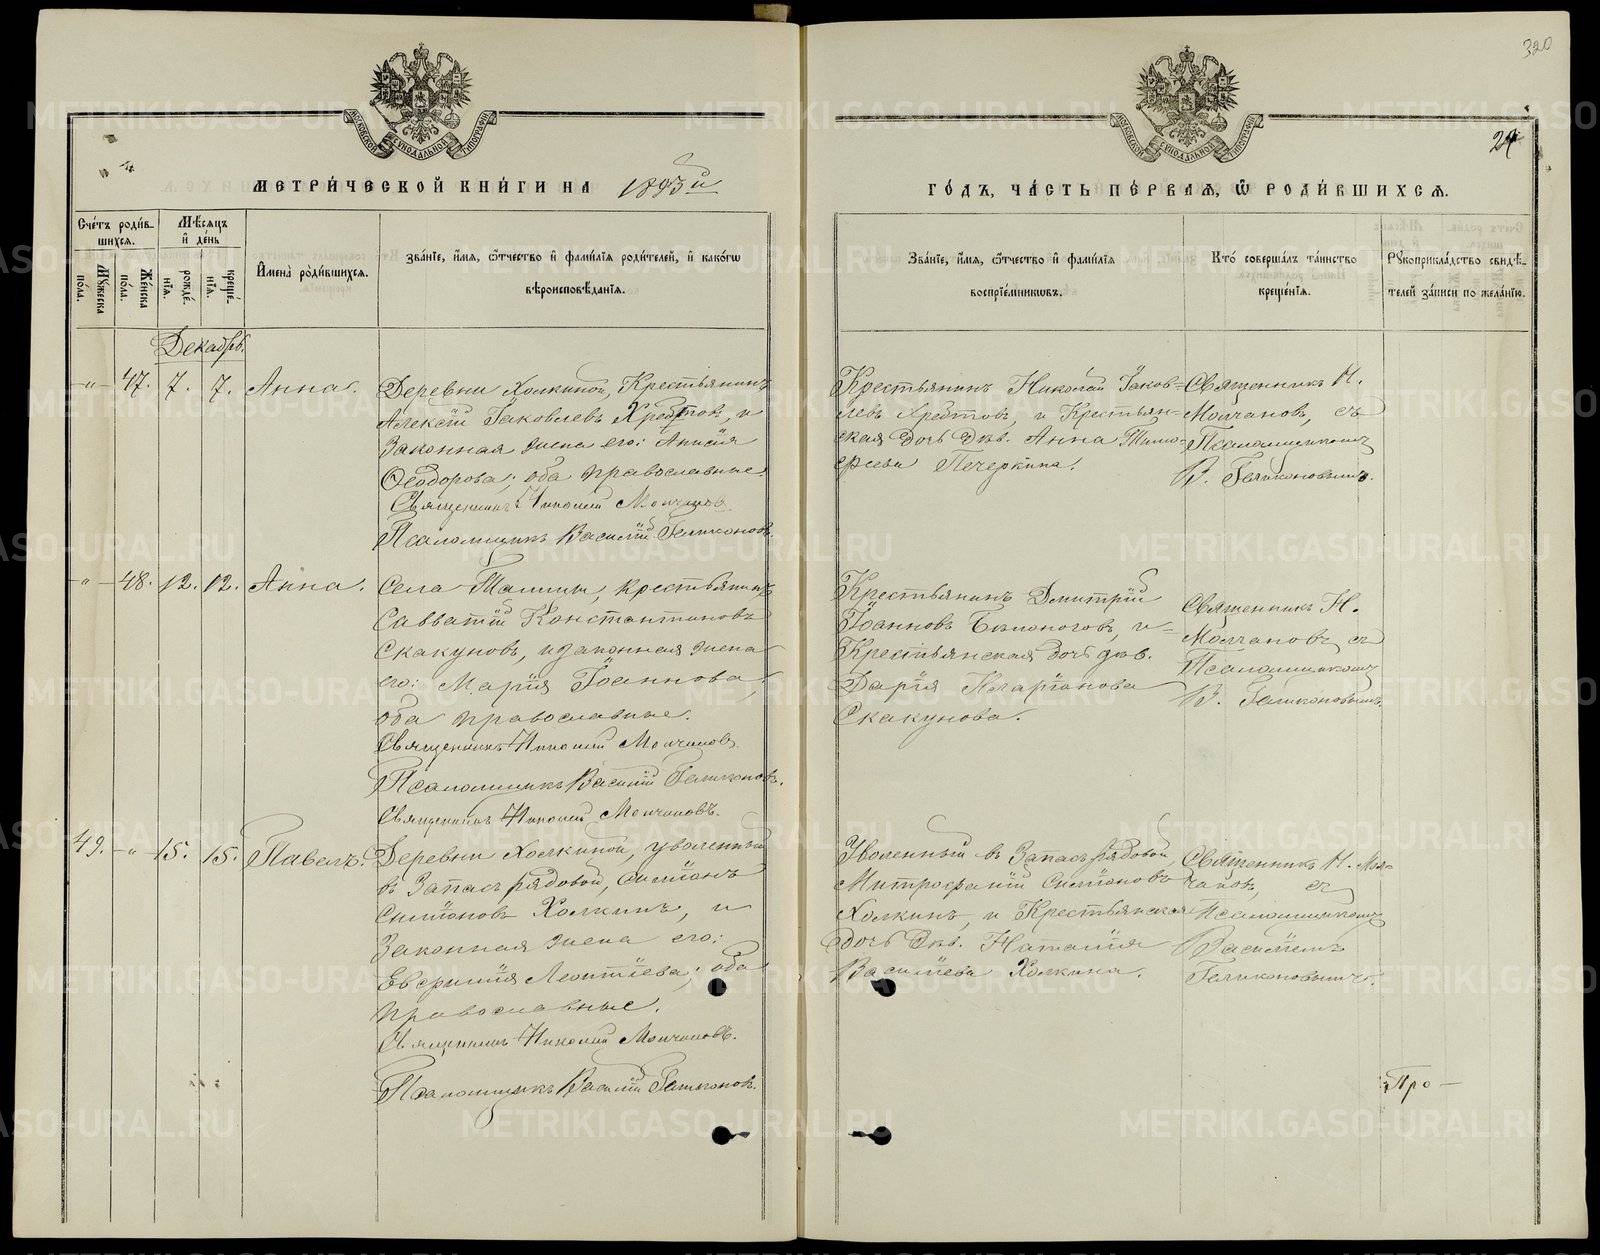 320
МОСКОВСКОЙ СѴНОДАЛЬНОЙ ТИПОГРАФІИ
МОСКОВСКОЙ СѴНОДАЛЬНОЙ ТИПОГРАФІИ
24
МЕТРИЧЕСКОЙ КНИГИ НА 1893й
ГОДЪ, ЧАСТЬ ПЕРВАЯ, Ѿ РОДИВШИХСЯ.
Счетъ родив-
шихся.
Мужеска
пола.
Женска
пола.
Мѣсяцъ
и день
рожде-
нія.
креще-
нія.
Имена родившихся.
Званіе, имя, ѿчество и фамилія родителей, и какогѡ
вѣроисповѣданія.
Званіе, имя, ѿчество и фамилія
воспріемниковъ.
Кто совершалъ таинство
крещенія.
Рукоприкладство свидѣ-
телей записи по желанію.
Декабрь.
-"- 47. 7. 7. Анна.
Деревни Холкиной, Крестьянинъ
Алексѣй Іаковлевъ Хребтовъ, и
Законная жена его: Анисія
Ѳеодорова; оба православные.
Священникъ Николай Молчановъ.
Псаломщикъ Василій Геликоновъ.
Крестьянинъ Николай Іаков-
левъ Хребтовъ, и Крестьян-
ская дочь дѣв. Анна Тимо-
феева Печеркина.
Священникъ Н.
Молчановъ, съ
Псаломщикомъ
В. Геликоновымъ.
-"- 48. 12. 12. Анна.
Села Ташлы, крестьянинъ
Савватій Константиновъ
Скакуновъ, и законная жена
его: Марія Іоаннова,
оба православные.
Священникъ Николай Молчановъ.
Псаломщикъ Василій Геликоновъ.
Священникъ Николай Молчановъ.
Крестьянинъ Димитрій
Іоанновъ Бѣлоноговъ, и
Крестьянская дочь дѣв.
Дарія
Скакунова.
Священникъ Н.
Молчановъ съ
Псаломщикомъ
В. Геликоновымъ.
49. -"- 15. 15. Павелъ.
Деревни Холкиной, уволенный
въ Запасъ рядовой, Симеонъ
Симеоновъ Холкинъ, и
Законная жена его:
Евфимія Леонтіева; оба
православные.
Священникъ Николай Молчановъ.
Псаломщикъ Василій Геликоновъ.
Уволенный въ Запасъ рядовой
Митрофаній Симеоновъ
Холкинъ, и Крестьянская
дочь дѣв. Наталія
Василіева Холкина.
Священникъ Н. Мол-
чановъ, съ
Псаломщикомъ
Василіемъ
Геликоновымъ.
Про-
METRIKI.GASO-URAL.RU